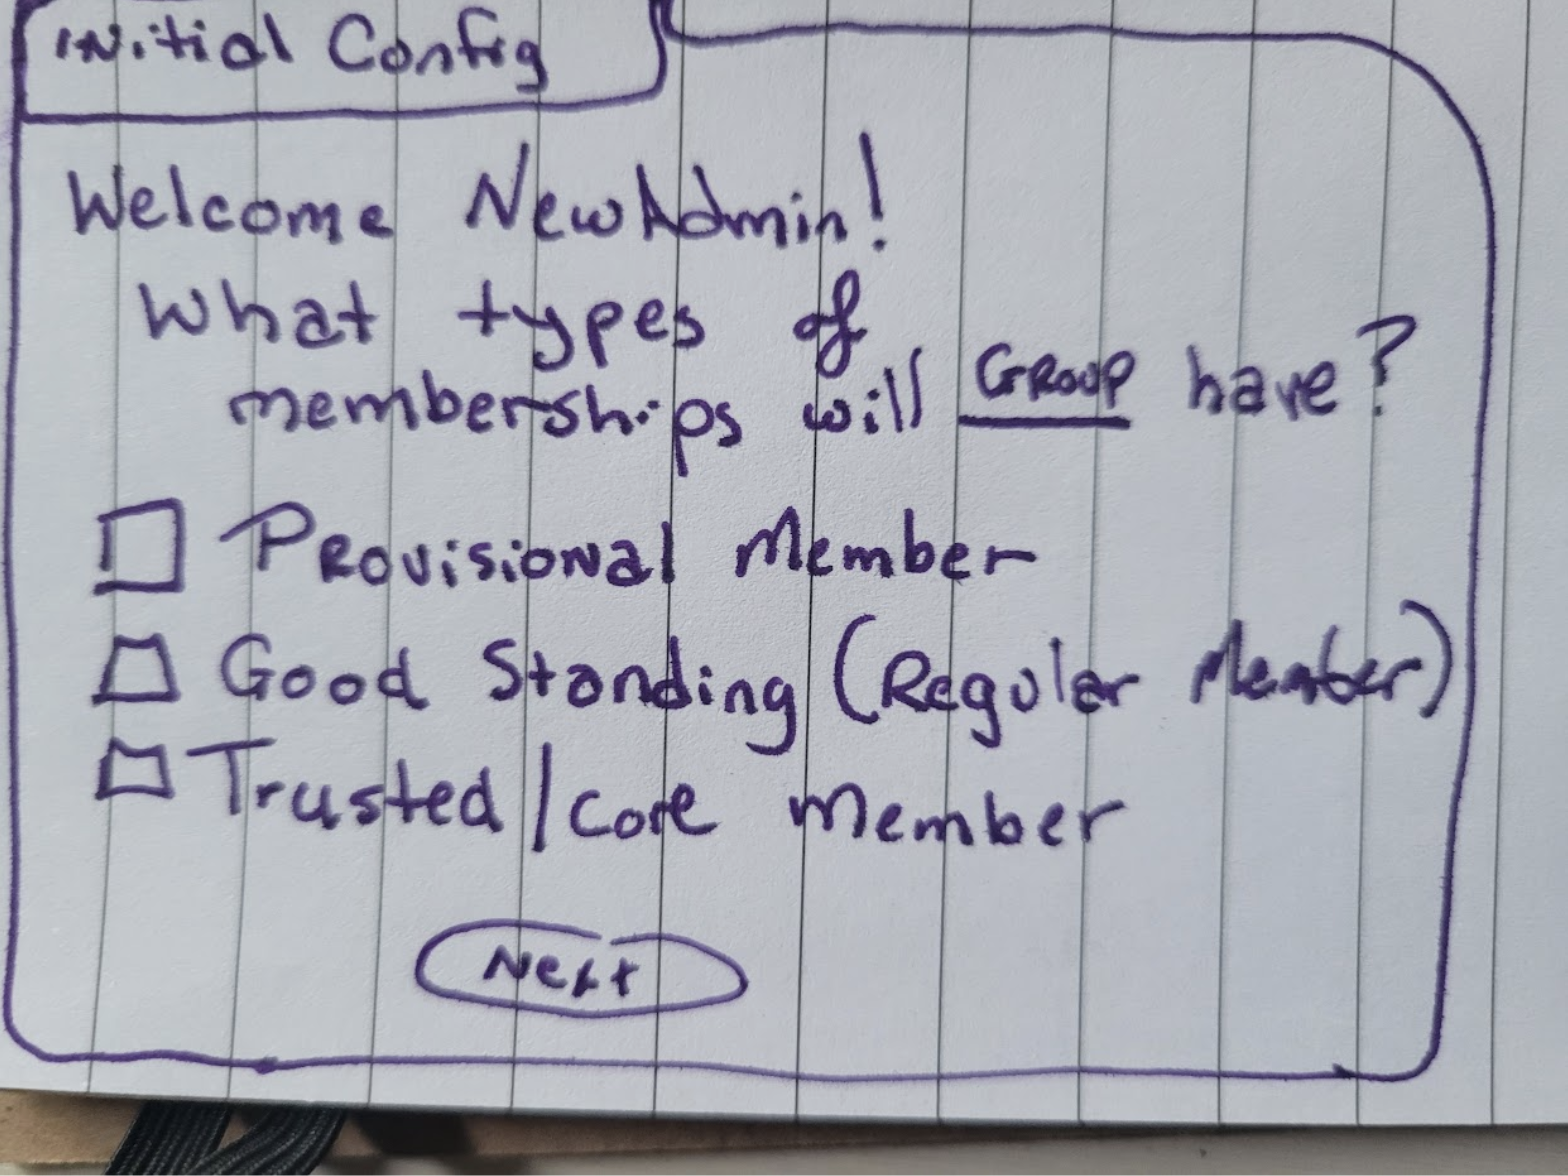 Initial Config
Welcome NewAdmin!
What types of
memberships will Group have?
Provisional Member
Good Standing (Regular Member)
Trusted/Core Member
Next